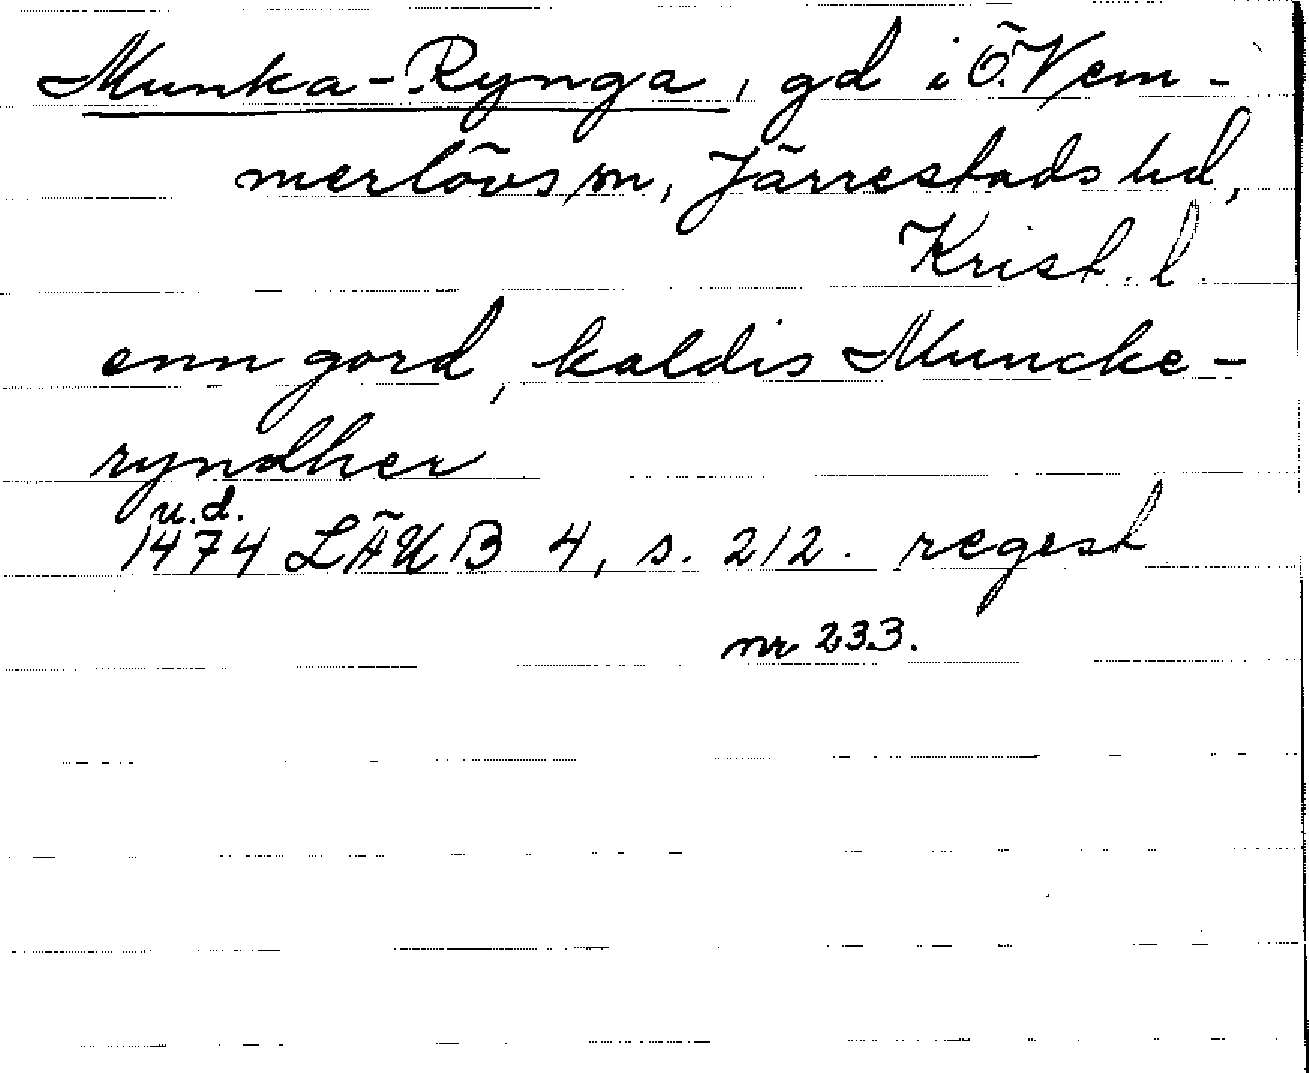 Munka-Rynga, gd i Ö. Vem-
merlövs sn, Järrestads hd,
Krist. l.
enn gord, kaldis Muncke-
ryndher
u.d.
1474 LÄUB 4, s. 212. regest
nr 233.